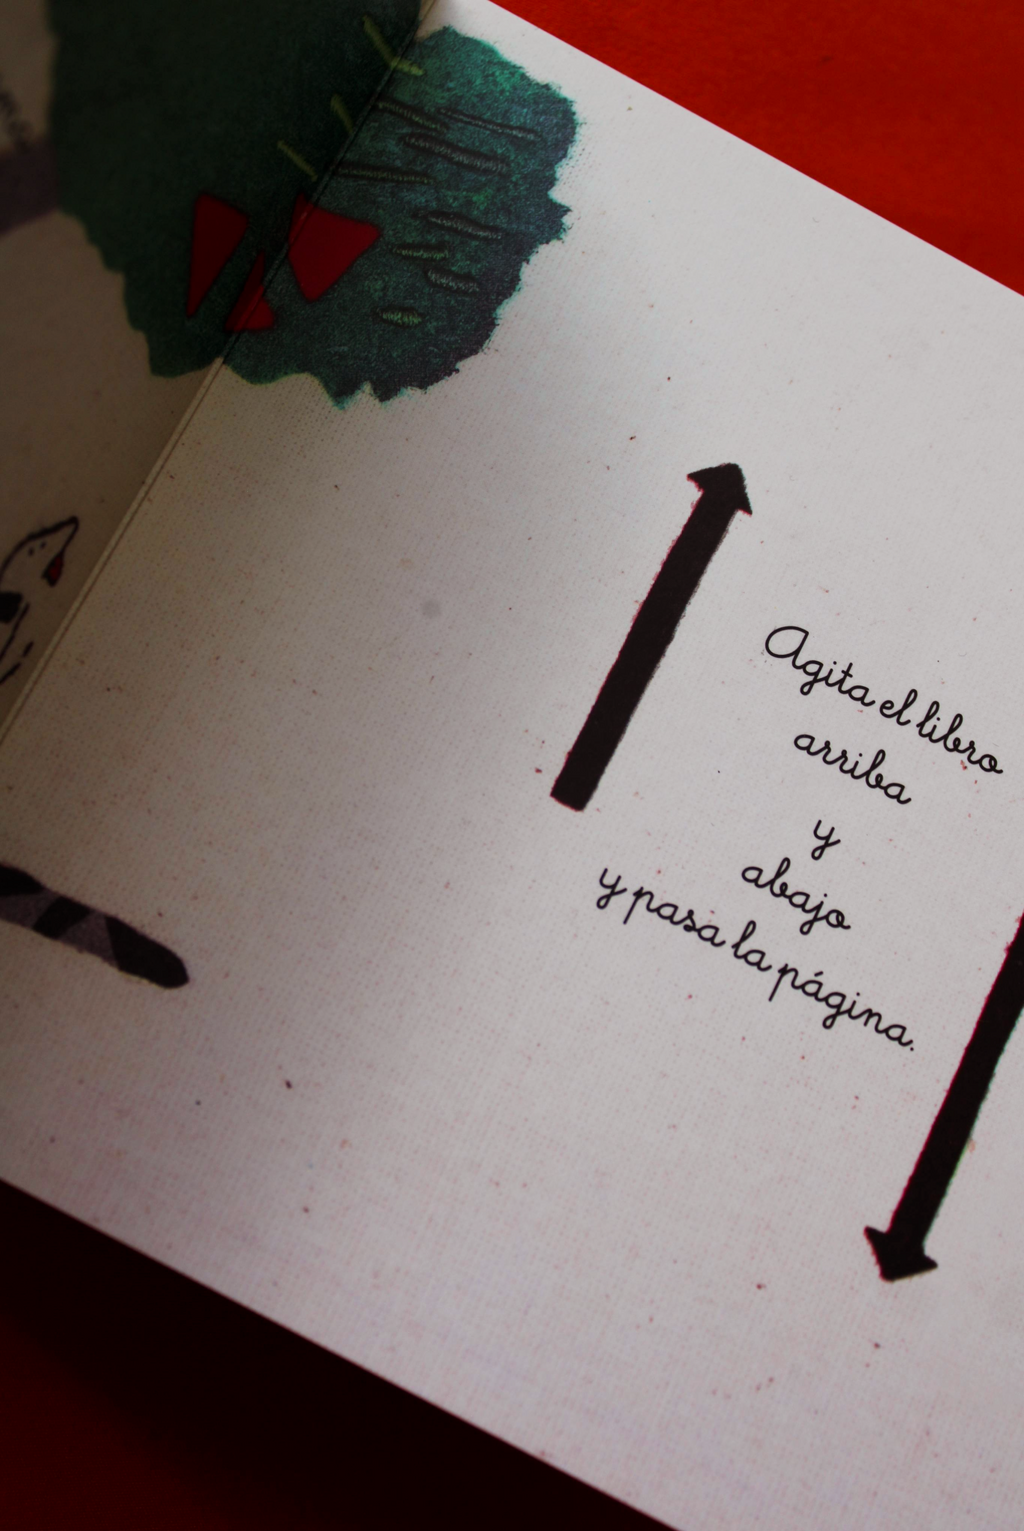 Agita el libro
arriba
y
abajo
y pasa la página.